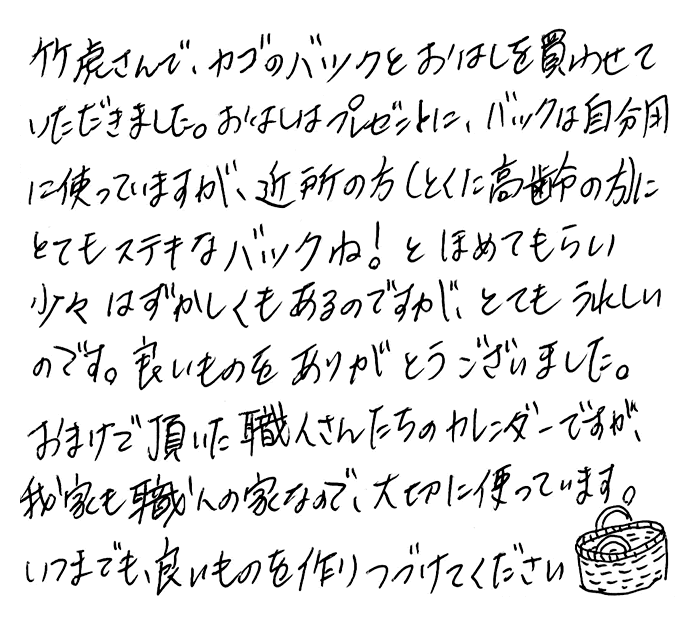 竹虎さんで、カゴのバックとおはしを買わせて
いただきました。おはしはプレゼントに、バックは自分用
に使っていますが、近所の方(とくに高齢の方)に
とてもステキなバックね!とほめてもらい
少々はずかしくもあるのですが、とてもうれしい
のです。良いものをありがとうございました。
おまけで頂いた職人さんたちのカレンダーですが、
我が家も職人の家なので、大切に使っています。
いつまでも、良いものを作りつづけてください